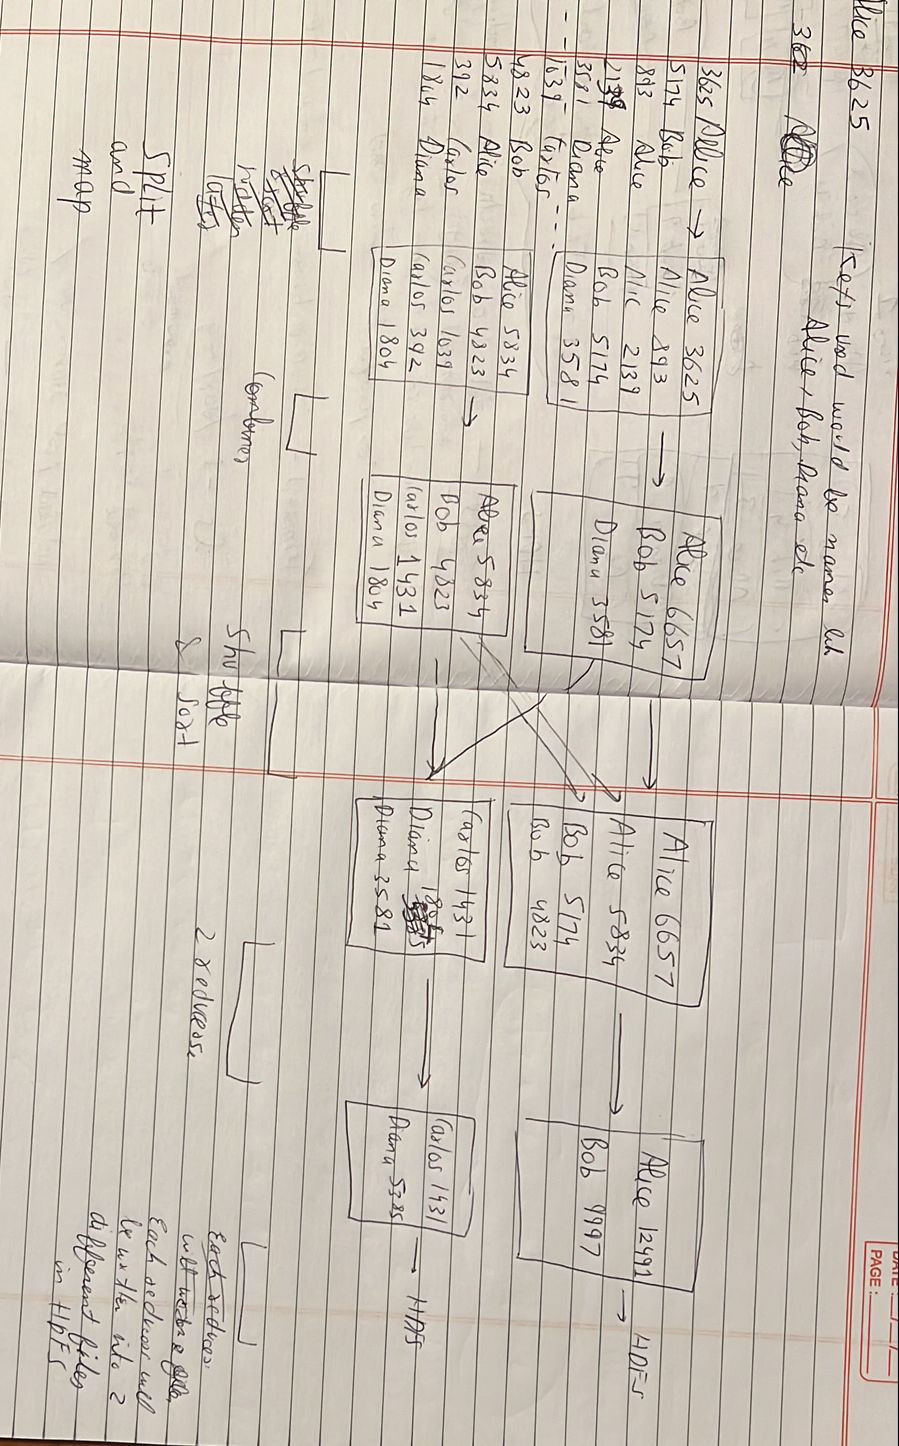 Alice 3625
Keys used would be names like
Alice, Bob, Diana etc
362
3625 Alice →
5174 Bob
893 Alice
2139 Alice
3581 Diana
1039 Carlos
4823 Bob
5834 Alice
392 Carlos
1804 Diana
Alice 3625
Alice 893
Alic 2139
Bob 5174
Diana 3581
Alice 5834
Bob 4823
Carlos 1039
Carlos 392
Diana 1804
Alice 6657
Bob 5174
Diana 3581
Alice 5834
Bob 4823
Carlos 1431
Diana 1804
Alice 6657
Alice 5834
Bob 5174
Bob 4823
Carlos 1431
Diana
Diana 3581
Alice 12491
Bob 9997
→ HDFS
Carlos 1431
Diana 5385
→ HDFS
Shuffle
& sort
Split
and
map
Combiner
Shuffle
& Sort
2 reducers
Each reducer
will
Each reducer will
be written into 2
different files
in HDFS
DATE:
PAGE: